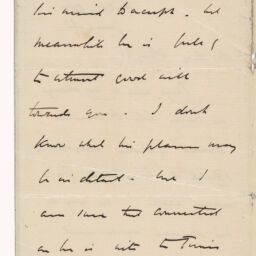 his mind to accept. but
meanwhile he is full of
the utmost good will
towards you. I don't
know what his plans may
be in detail. but I
am sure that connected
as he is with the Times